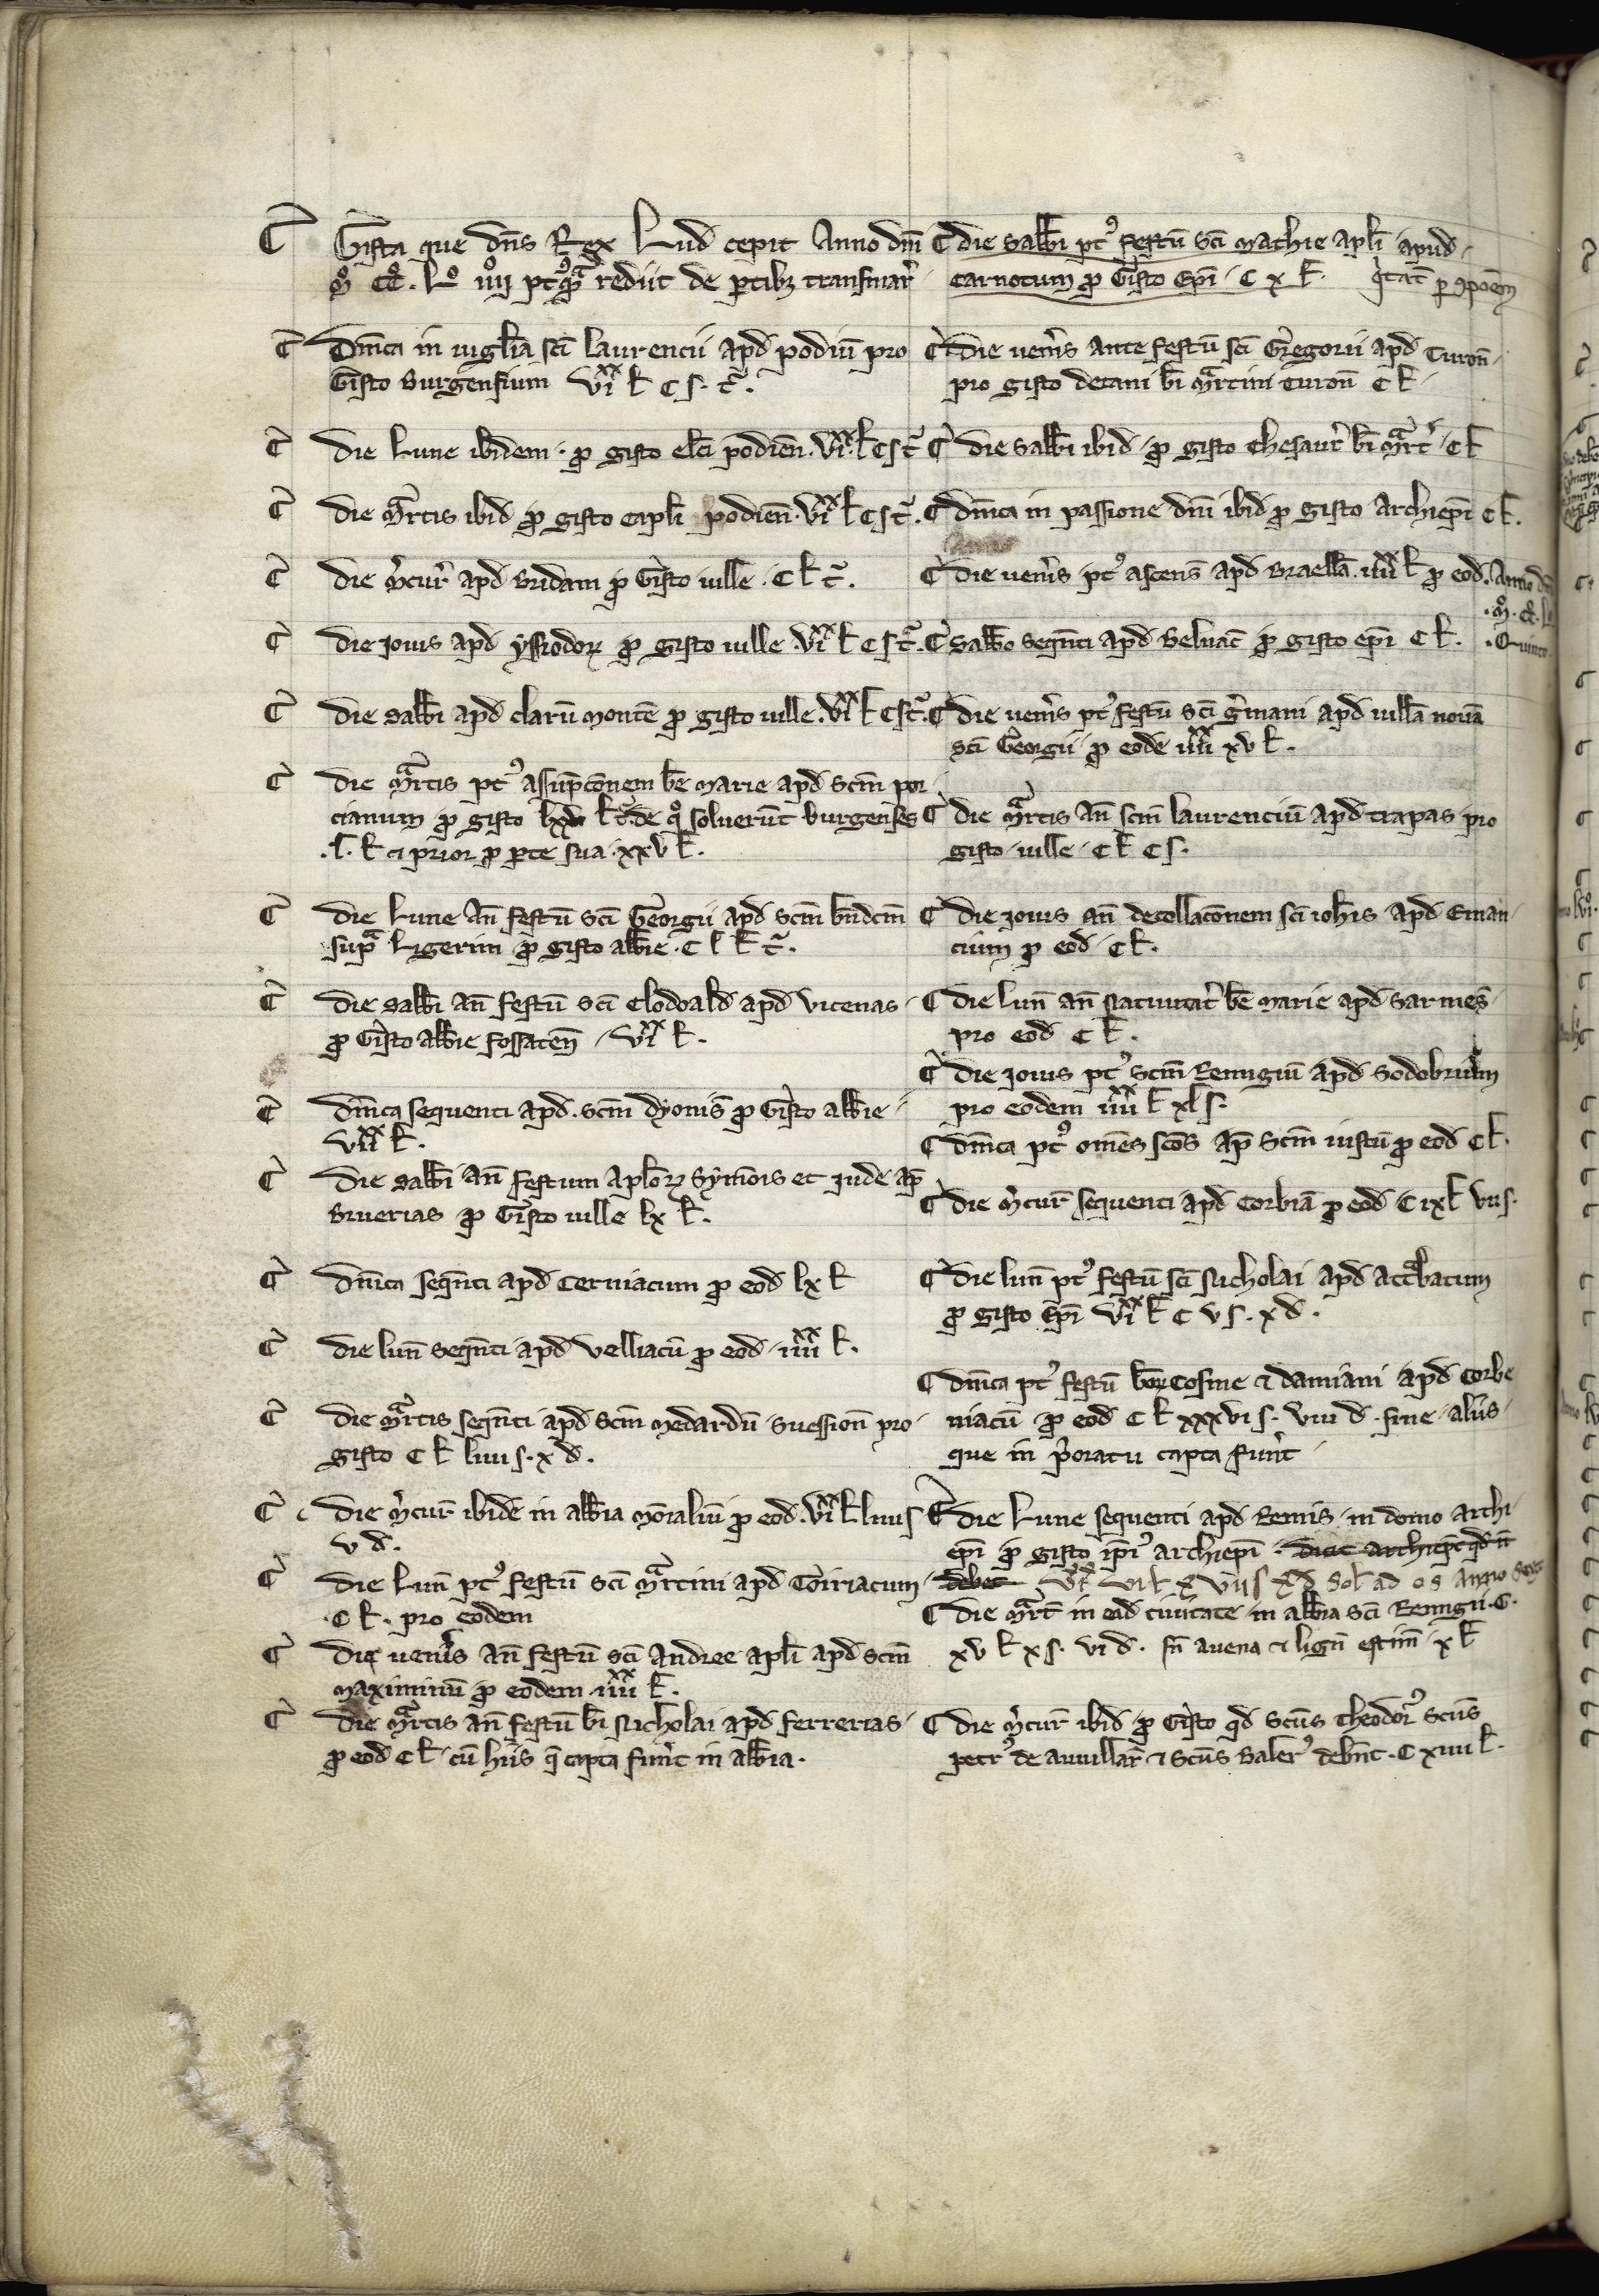 Gista que dns Rex Lud cepit Anno dni
mo cco. Lo iiijo postqa rediit de ptibz transmar
Dnica in vigilia sci laurencii apd podiu pro
Gisto Burgensium vixx l c s. t.
die Lune ibidem. p gisto elci podien. vixx. l c s t
die Martis ibid p gisto capli podien. vixx l c s t.
die mcur apd Bridam p Gisto ville. c l t.
die jovis apd yssiodor p gisto ville. vixx l c s t.
die sabbi apd claru monte p gisto ville. vixx l c s t.
die Martis pt9 assupconem be marie apd scm por
cianum p gisto lxxv l t. de qo solverut burgenses
.l. l et prior p pte sua. xxv l.
die Lune an festu sci Georgii apd scm bndcm
supa Ligerim p gisto abbie. c l l t.
die sabbi an festu sci Clodoald apd vicenas
p Gisto abbie fossaten. vixx l.
dnica sequenti apd. scm dyonis p Gisto abbie
viixx l.
die sabbi an festum aplor Symois et jude ap
Bruerias p Gisto ville lx l.
dnica seqnti apd Cerniacum p eod lx l
die lun seqnti apd velliacu p eod. iiiixx l.
die Martis seqnti apd scm medardu suession pro
gisto c l liiii s. x d.
die mcur ibide in abbia moialiu p eod. vixx l liiii s
v d.
die Lun pt9 festu sci Martini apd Toiriacum
.c l. pro eodem
die venis an festu sci Andree apli apd scm
maximinu p eodem. iiiixx l.
die Martis an festu bi Nicholai apd ferrerias
p eod c l. cu hiis q capta funt in abbia.
die sabbi pt9 festu sci mathie apli apud
carnotum p Gisto epi. c x l. qtat p gpoem
die venis ante festu sci Gregorii apd Turon
pro gisto decani bi Martini turon c l.
die sabbi ibid. p gisto thesaur bi Mart. c l
dnica in passione dni ibid p gisto Archiepi c l.
die venis pt9 ascens apd Braella. iiiixx l p eod. Anno dni
.mo. cco. lo
.Quinto.
sabbo seqnti apd Belvac p gisto epi c l.
die venis pt9 festu sci gmani apd villa nova
sci Georgii p eode iiiixx xv l.
die Martis an scm laurenciu apd trapas pro
gisto ville. c l c s.
die jovis an decollaconem sci iohis apd Eman
cium p eod. c l.
die lun an Nativitat be marie apd Sarmes
pro eod c l.
die jovis pt9 scm Remigiu apd Sodobrium
pro eodem iiiixx l xl s.
dnica pt9 omes scos ap scm iustu p eod c l.
die mcur sequenti apd Corbia p eod c ix l vii s.
die lun pt9 festu sci Nicholai apd Attrebatum
p gisto epi vixx l c v s. x d.
dnica pt9 festu bor Cosme et damiani apd Corbe
niacu p eod c l xxxvi s. viii d. sine aliis
que in poratu capta funt
die Lune sequenti apd Remis in domo Archi
epi p gisto ipi9 archiepi. dicit archiepc qd n
debet vixx vi l x vii s x d sol ad os anno
die Mart in ead civitate in abbia sci Remigii. c.
xv l x s. vi d. sn avena et lign estim x l
die mcur ibid p Gisto qd scus Theodor9 scus
petr9 de avvillar et scus Baler9 debnt. c xiiii l.